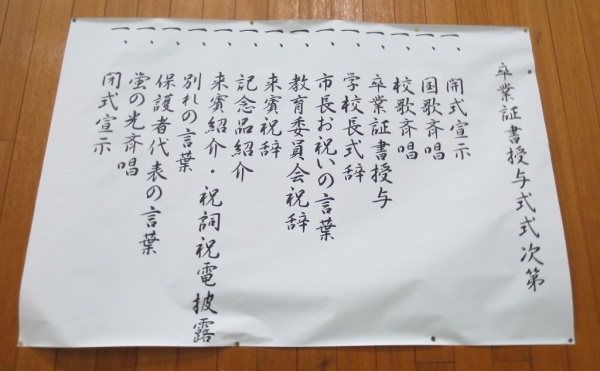 卒業証書授与式式次第
一、開式宣示
一、国歌斉唱
一、校歌斉唱
一、卒業証書授与
一、学校長式辞
一、市長お祝いの言葉
一、教育委員会祝辞
一、来賓祝辞
一、記念品紹介
一、来賓紹介・祝詞祝電披露
一、別れの言葉
一、保護者代表の言葉
一、蛍の光斉唱
一、閉式宣示